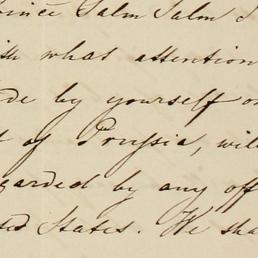 Prince Salm Salm
with what attention
made by yourself or
t of Prussia, will
egarded by any off
ted States. We sha